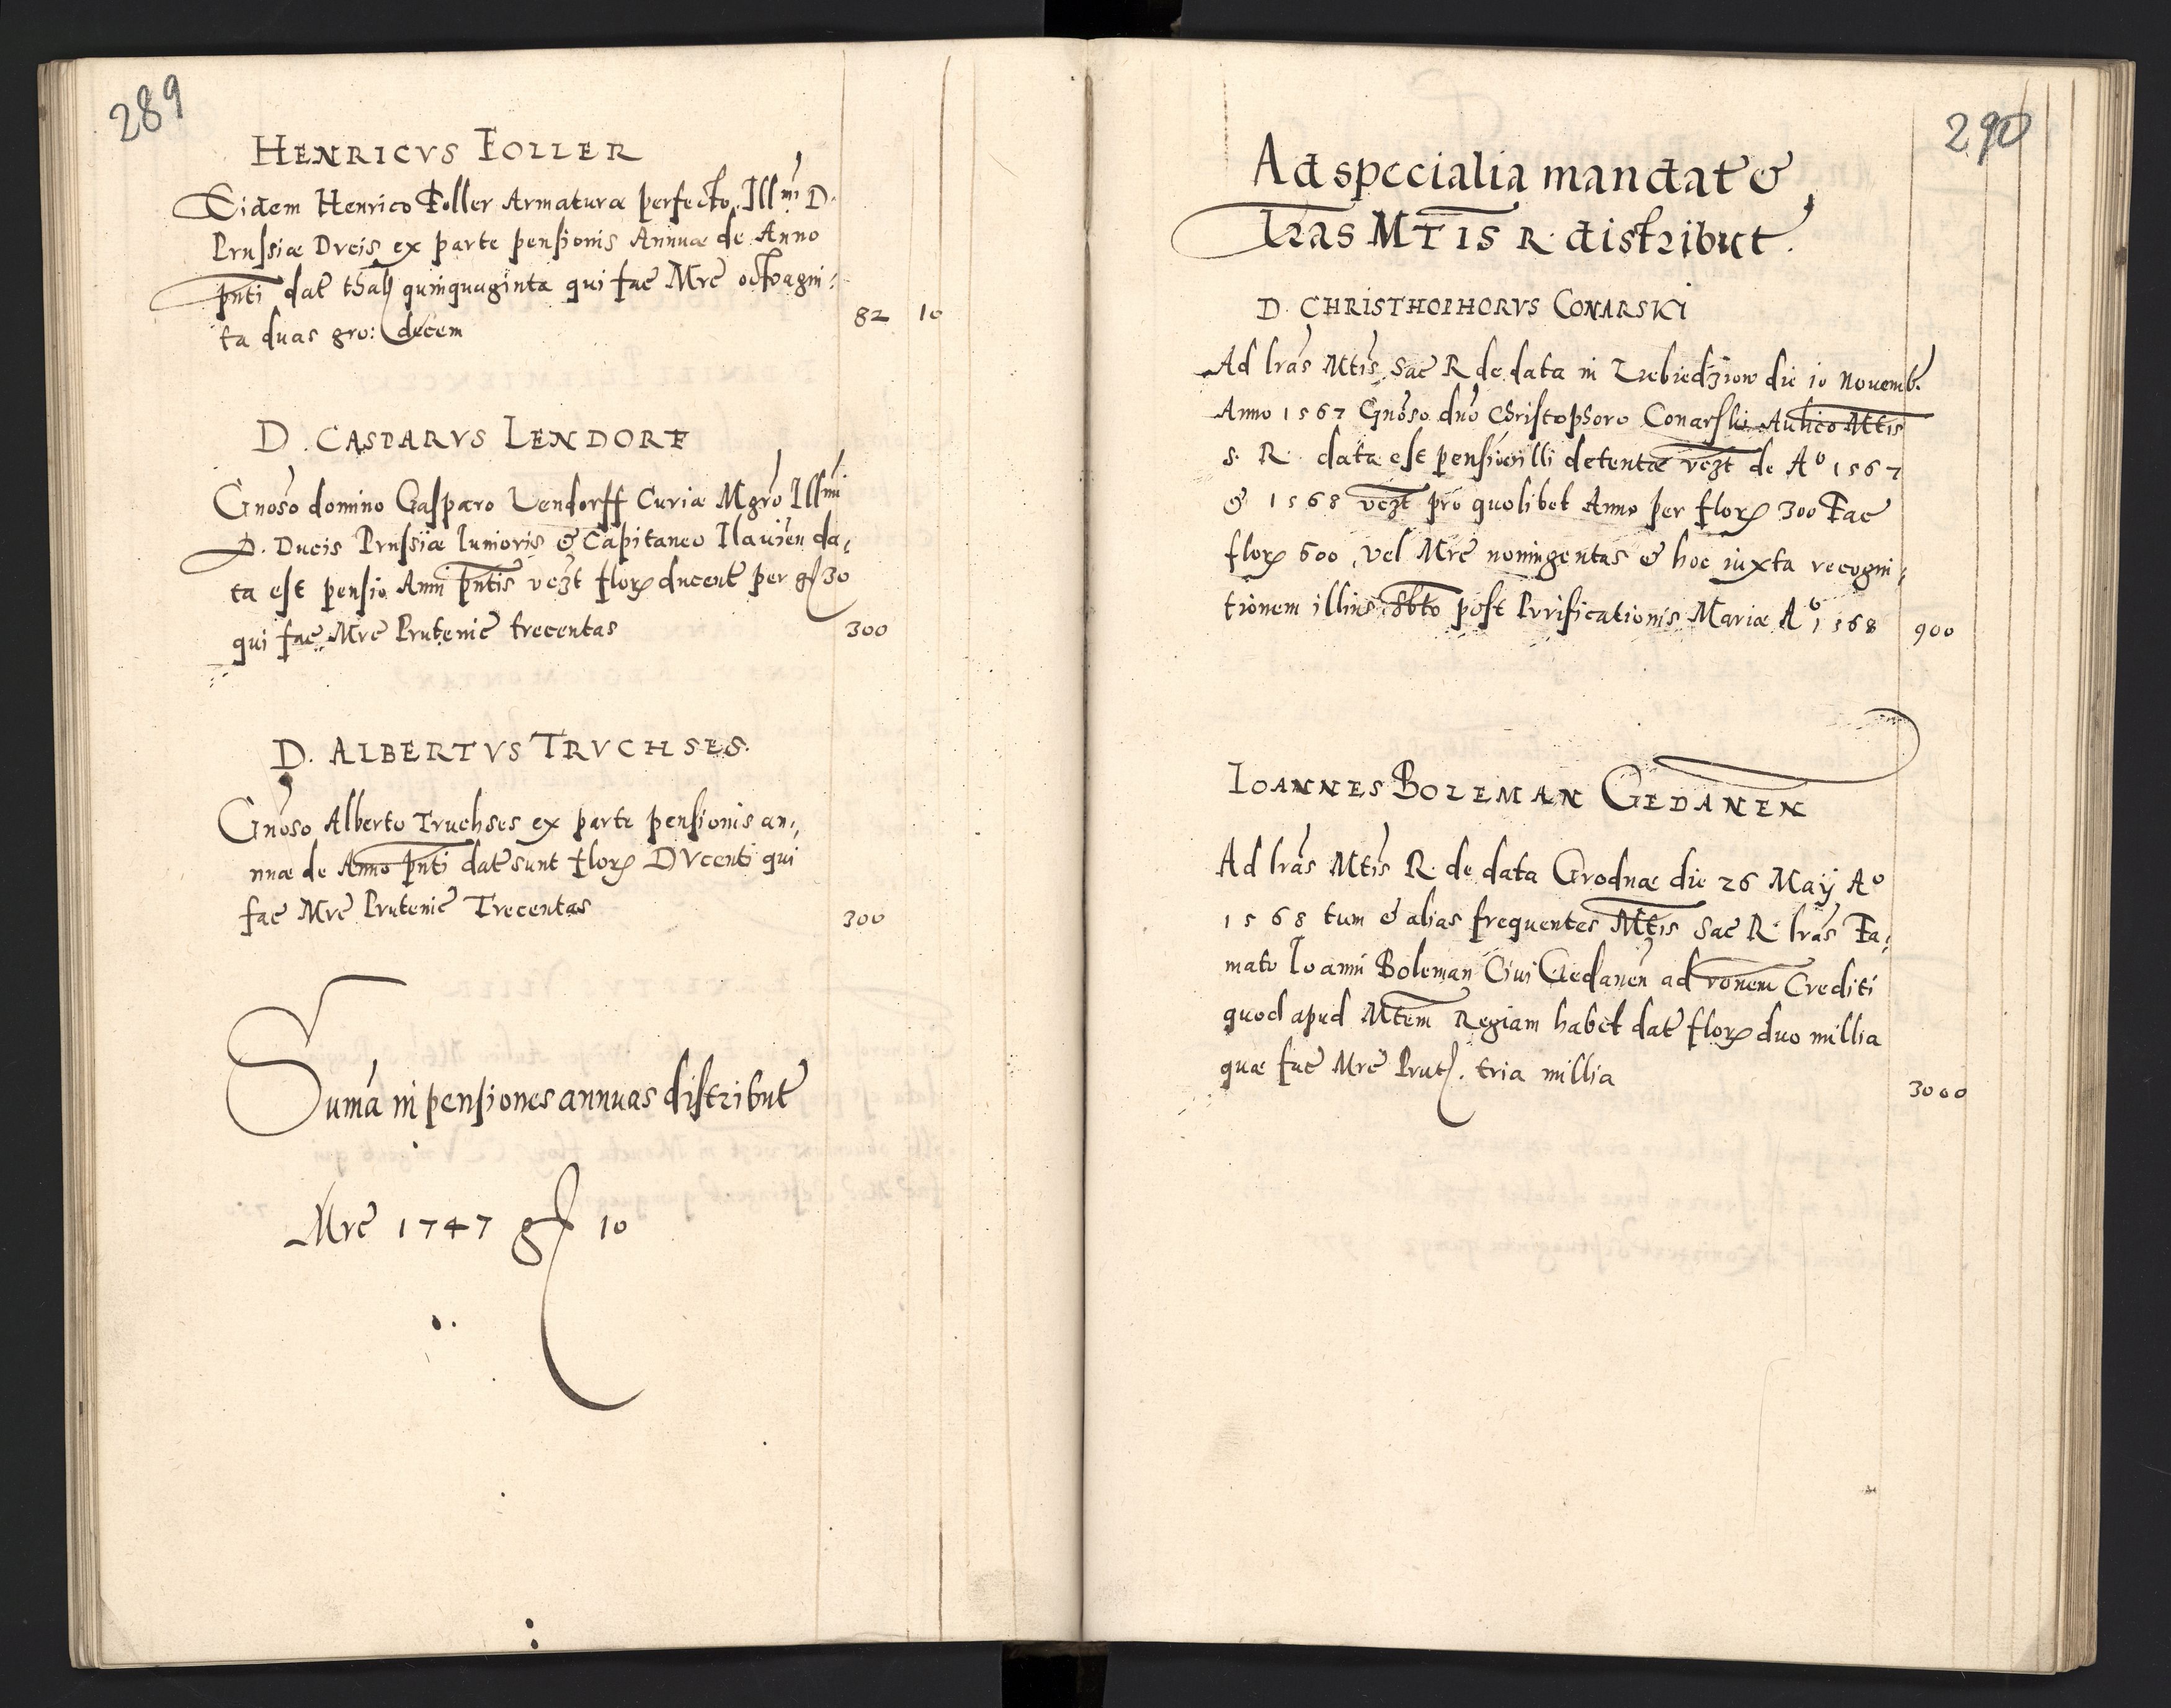 289
HENRICVS FOLLER
Eidem Henrico Foller Armaturæ þerfecto Illmi D.
Prussiæ Dvcis ex parte pensionis Annuæ de Anno
pnti dat thal quinquaginta qui fac Mrc octvagin:
ta duas gro: decem 82 10
D. CASPARVS LENDORF
Gnoso domino Casparo Lendorff Curiæ Mgro Illmi
D. Ducis Prussiæ Iunioris & Capitaneo Ilauien da:
ta est pensio Anni pntis vczt flor ducent per g 30
qui fac Mrc Prutenic trecentas 300
D. ALBERTVS TRVCHSES.
Gnoso Alberto Truchses ex parte pensionis an:,
nuæ de Anno pnti dat sunt flor DVcenti qui
fac Mrc Prutenic Trecentas 300
Suma in pensiones annuas distribut
Mrc 1747 g 10
290
Ad specialia mandat &
lras MTIS R. distribut.
D. CHRISTHOPHORVS CONARSKI
Ad lras Mtis Sac R de data in Liebiedziow die 10 Novemb.
Anno 1567 Gnoso dno Christophoro Conarski Aulico Mtis
S. R. data est pensio illi detentæ vczt de Ao 1567
& 1568 vczt pro quolibet Anno per flor 300 Fac
flor 600, vel Mrc noningentas & hoc iuxta recogni:
tionem illius Sbto post Pvrificationis Mariæ Ao 1568 900
IOANNES BOLEMAN GEDANEN
Ad lras Mtis R. de data Grodnæ die 26 Maÿ Ao
1568 tum & alias frequentes Mtis Sac R. lras Fa:
mato Ioanni Boleman Ciui Gedanen ad ronem Crediti
quod apud Mtem Regiam habet dat flor duo millia
quæ fac Mrc Prut. tria millia 3000